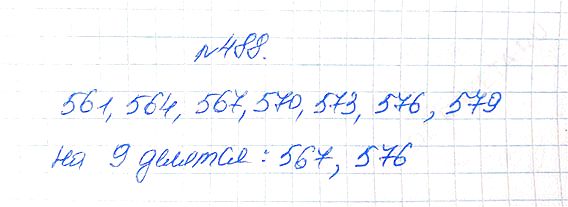 №488.
561, 564, 567, 570, 573, 576, 579
на 9 делятся: 567, 576